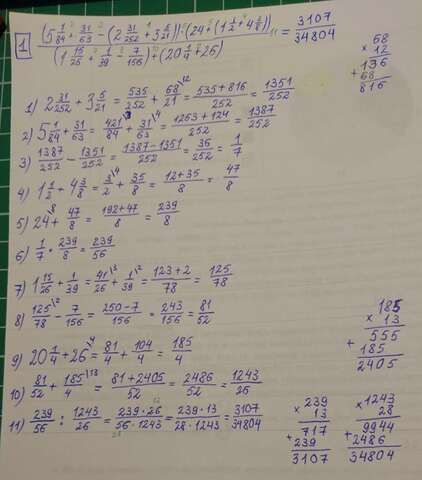 1. ((5 1/84 + 31/63 − (2 31/252 + 3 5/21)) · (24 + (1 1/2 + 4 3/8))) / ((1 15/26 + 1/39 − 7/156) + (20 1/4 + 26)) = 3107/34804
1) 2 31/252 + 3 5/21 = 535/252 + 68/21 \12 = (535+816)/252 = 1351/252
2) 5 1/84 + 31/63 = 421/84 \3 + 31/63 \4 = (1263+124)/252 = 1387/252
3) 1387/252 − 1351/252 = (1387−1351)/252 = 36/252 = 1/7
4) 1 1/2 + 4 3/8 = 3/2 \4 + 35/8 = (12+35)/8 = 47/8
5) 24 \8 + 47/8 = (192+47)/8 = 239/8
6) 1/7 · 239/8 = 239/56
7) 1 15/26 + 1/39 = 41/26 \3 + 1/39 \2 = (123+2)/78 = 125/78
8) 125/78 \2 − 7/156 = (250−7)/156 = 243/156 = 81/52
9) 20 1/4 + 26 \4 = 81/4 + 104/4 = 185/4
10) 81/52 + 185/4 \13 = (81+2405)/52 = 2486/52 = 1243/26
11) 239/56 : 1243/26 = (239·26)/(56·1243) = (239·13)/(28·1243) = 3107/34804
68
× 12
136
+ 68
816
185
× 13
555
+ 185
2405
239
× 13
717
+ 239
3107
1243
× 28
9944
+ 2486
34804